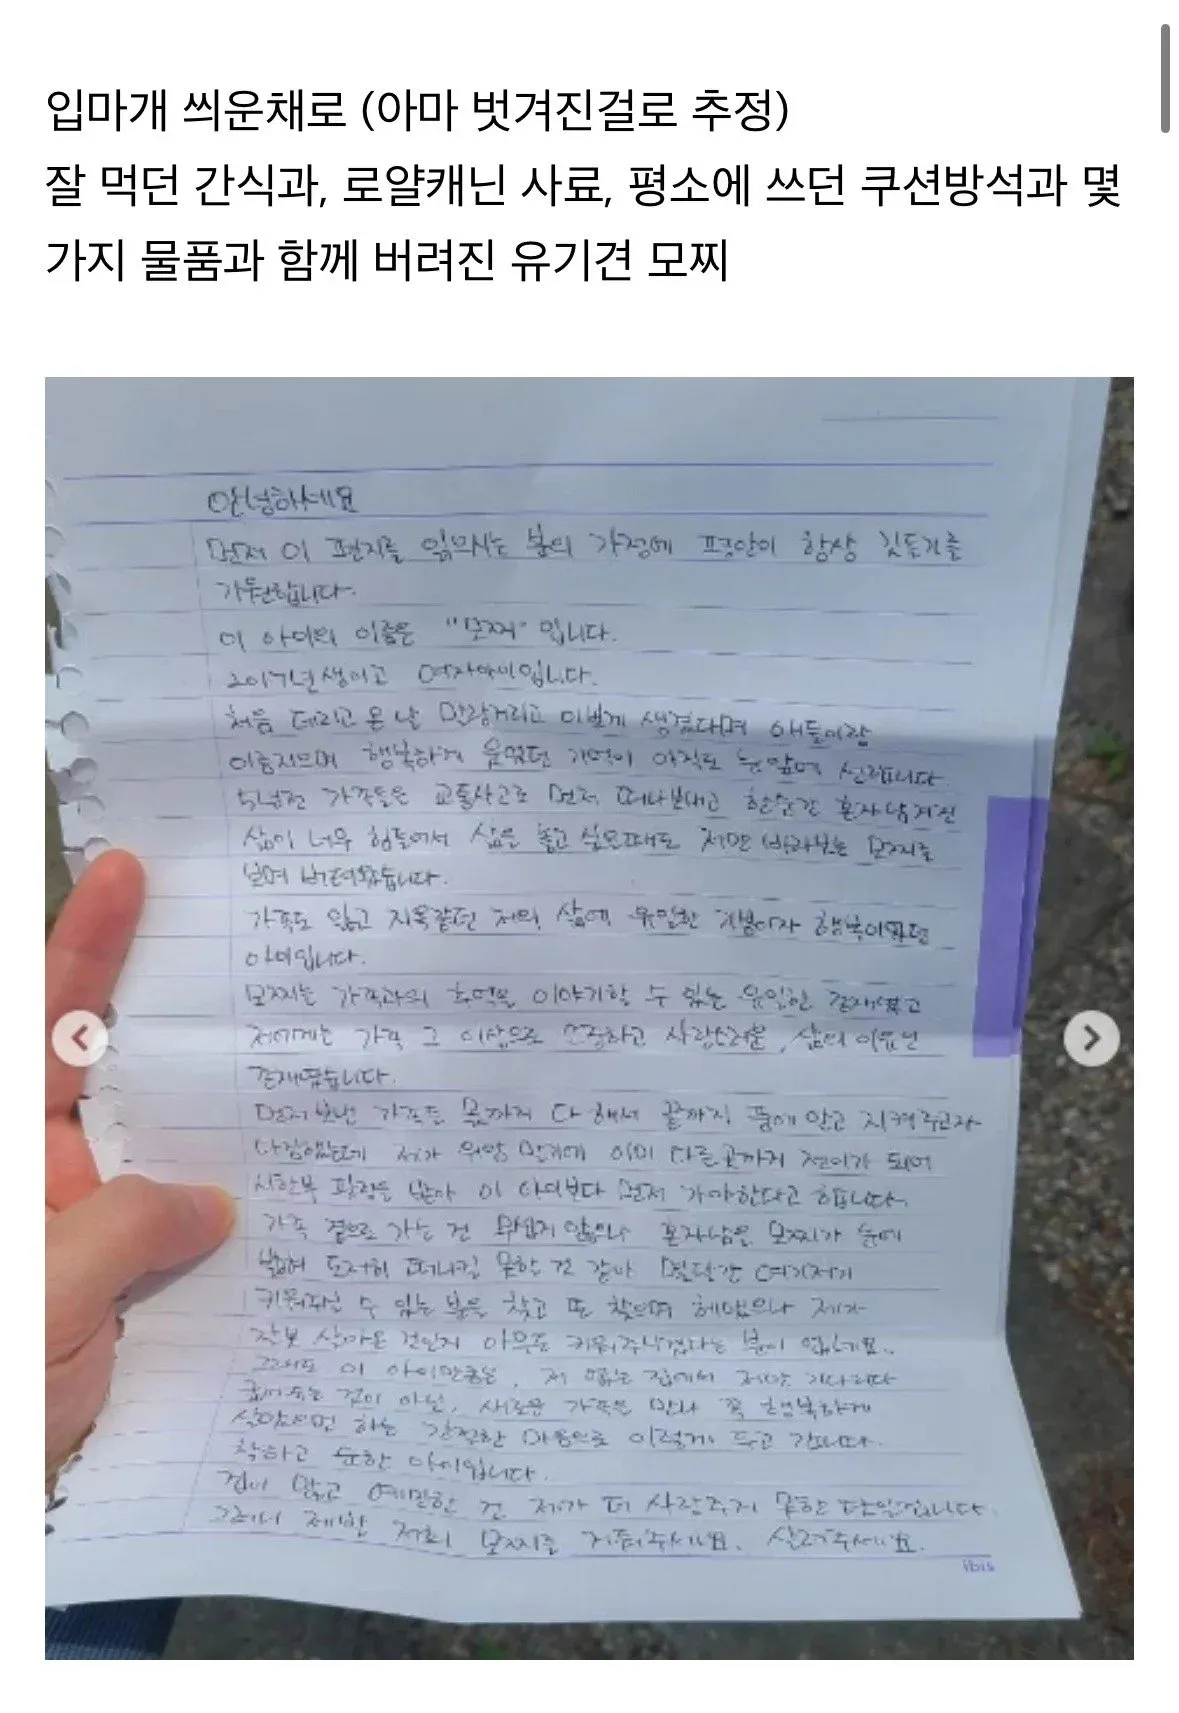 입마개 씌운채로 (아마 벗겨진걸로 추정)
잘 먹던 간식과, 로얄캐닌 사료, 평소에 쓰던 쿠션방석과 몇
가지 물품과 함께 버려진 유기견 모찌
안녕하세요
먼저 이 편지를 읽으시는 분의 가정에 평안이 항상 깃들기를
기원합니다.
이 아이의 이름은 "모찌" 입니다.
2017년생이고 여자아이입니다.
처음 데리고 온 날 말랑거리고 이쁘게 생겼다며 애들이랑
이름지으며 행복하게 웃었던 기억이 아직도 눈앞에 선합니다.
5년전 가족들은 교통사고로 먼저 떠나보내고 한순간 혼자 남겨진
삶이 너무 힘들어서 삶을 놓고 싶을때도 저만 바라보는 모찌를
보며 버텨왔습니다.
가족도 잃고 지옥같던 저의 삶에 유일한 기쁨이자 행복이였던
아이입니다.
모찌는 가족과의 추억을 이야기할 수 있는 유일한 존재였고
저에게는 가족 그 이상으로 소중하고 사랑스러운, 삶의 이유인
존재였습니다.
먼저보낸 가족들 몫까지 다 해서 끝까지 품에 안고 지켜주고자
다짐했는데 제가 위암 말기에 이미 다른곳까지 전이가 되어
시한부 판정을 받아 이 아이보다 먼저 가야한다고 합니다.
가족 곁으로 가는 건 무섭지 않으나 혼자남을 모찌가 눈에
밟혀 도저히 떠나길 못할 것 같아 몇달간 여기저기
키워주실 수 있는 분을 찾고 또 찾으며 헤맸으나 제가
잘못 살아온 것인지 아무도 키워주시겠다는 분이 없네요..
그래도 이 아이만큼은, 저 없는 집에서 저만 기다리다
굶어죽는 것이 아닌, 새로운 가족을 만나 꼭 행복하게
살았으면 하는 간절한 마음으로 이렇게 두고 갑니다.
착하고 순한 아이입니다.
겁이 많고 예민한 건 제가 더 사랑주지 못한 탓일겁니다.
그러니 제발 저희 모찌를 거둬주세요. 살려주세요.
ibis